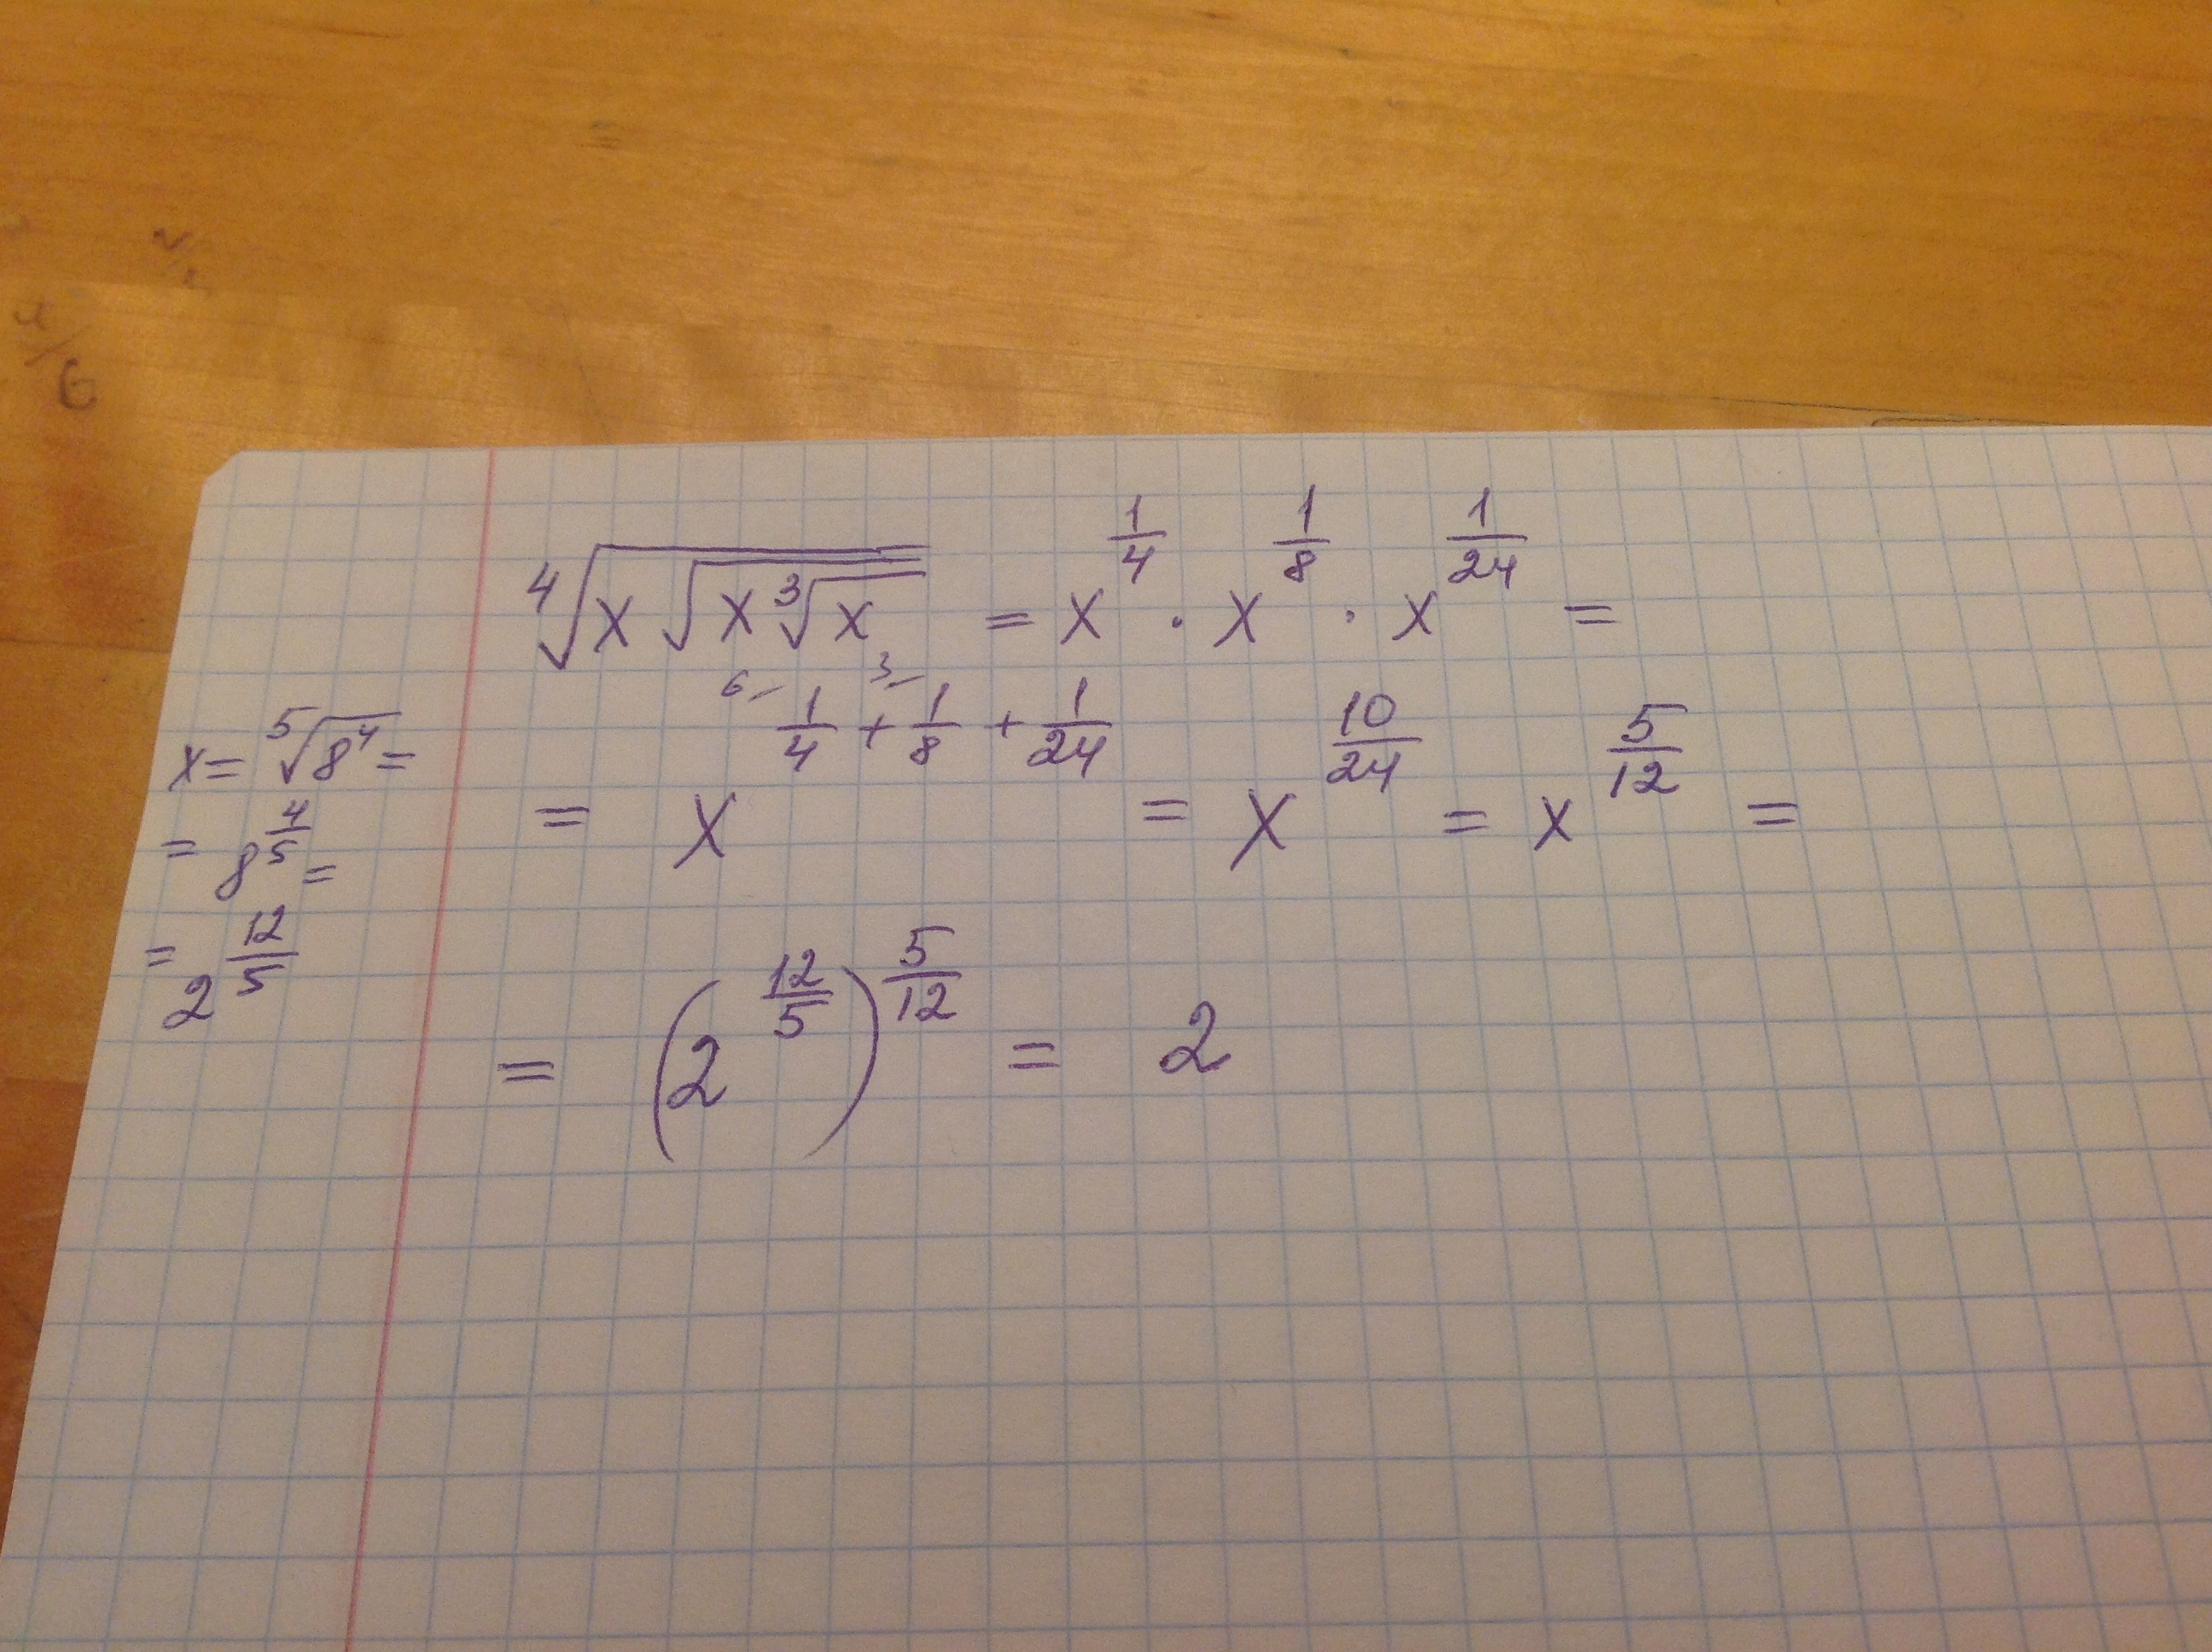 ⁴√(x√(x³√x)) = x^(1/4) · x^(1/8) · x^(1/24) =
6 3
= x^(1/4 + 1/8 + 1/24) = x^(10/24) = x^(5/12) =
= (2^(12/5))^(5/12) = 2
x = ⁵√(8⁴) =
= 8^(4/5) =
= 2^(12/5)
6